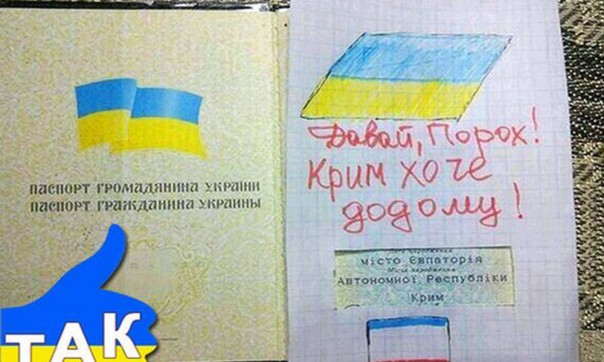 ПАСПОРТ ГРОМАДЯНИНА УКРАЇНИ
ПАСПОРТ ГРАЖДАНИНА УКРАИНЫ
ТАК
Давай, Порох!
Крим хоче
додому!
місто Євпаторія
Автономної Республіки
Крим